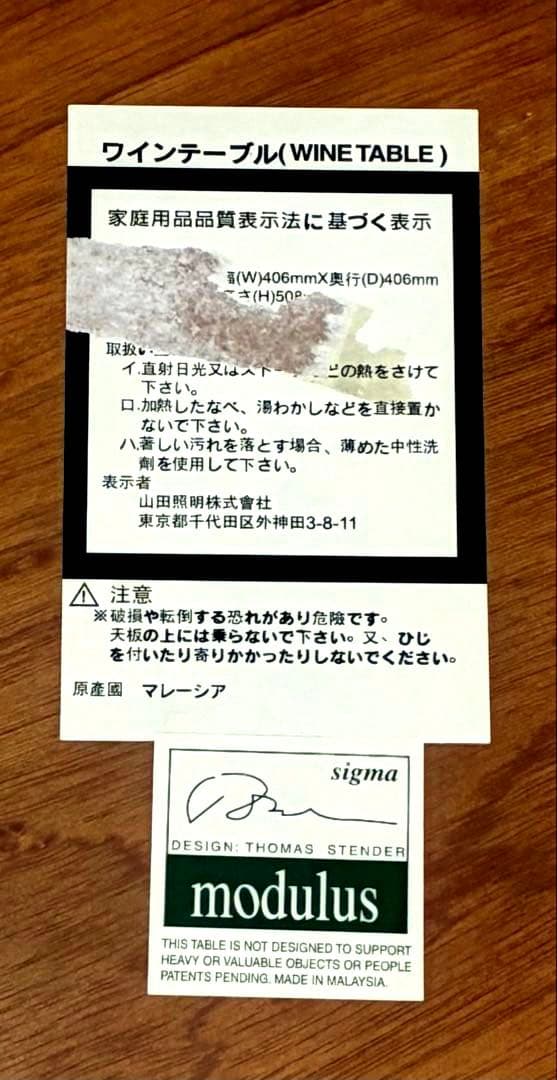 ワインテーブル(WINE TABLE)
家庭用品品質表示法に基づく表示
(W)406mmX奥行(D)406mm
さ(H)508
取扱い
イ.直射日光又はストーの熱をさけて
下さい。
ロ.加熱したなべ、湯わかしなどを直接置か
ないで下さい。
ハ.著しい汚れを落とす場合、薄めた中性洗
剤を使用して下さい。
表示者
山田照明株式會社
東京都千代田区外神田3-8-11
⚠ 注意
※破損や転倒する恐れがあり危険です。
天板の上には乗らないで下さい。又、ひじ
を付いたり寄りかかったりしないでください。
原產國 マレーシア
sigma
DESIGN: THOMAS STENDER
modulus
THIS TABLE IS NOT DESIGNED TO SUPPORT
HEAVY OR VALUABLE OBJECTS OR PEOPLE
PATENTS PENDING. MADE IN MALAYSIA.